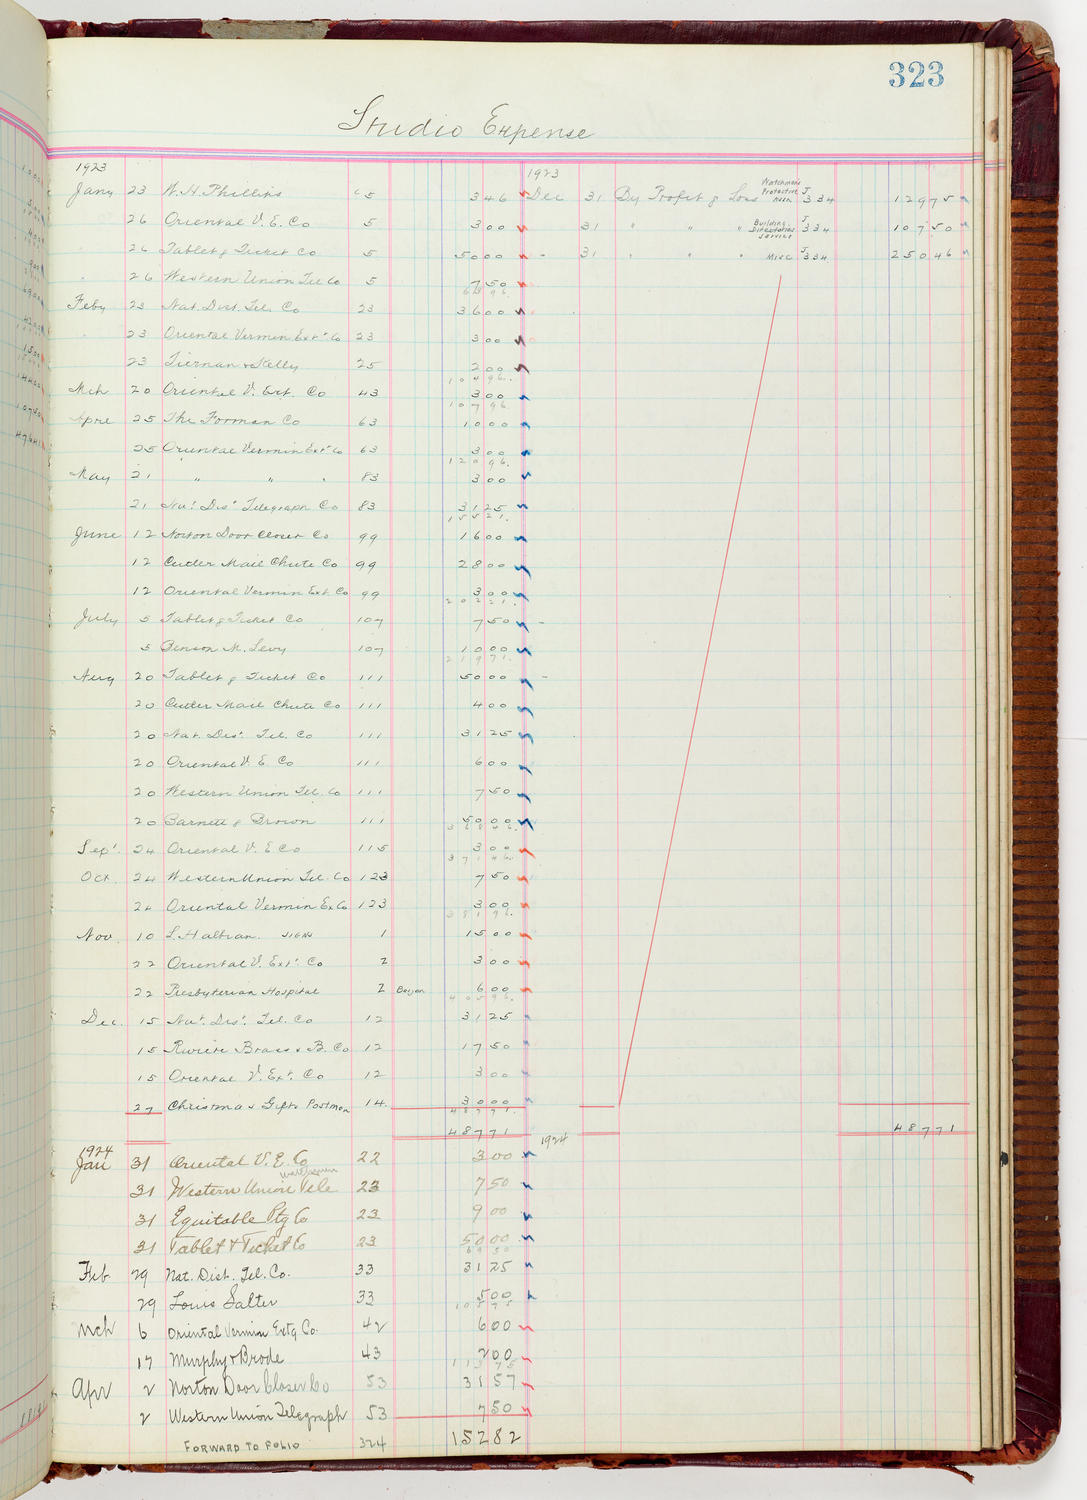 323
Studio Expense
1923 1923
Jany 23 W. H. Phillips C 5 3 46 Dec 31 By Profit & Loss Watchman's Protective Assn J 334 129 75
26 Oriental V. E. Co 5 3 00 31 " " " Building Directories Service J 334 107 50
26 Tablet & Ticket Co 5 50 00 - 31 " " " Misc J 334 250 46
26 Western Union Tel Co 5 7 50
63 96
Feby 23 Nat. Dist. Tel. Co 23 36 00
23 Oriental Vermin Ext Co 23 3 00
23 Tiernan & Kelly 25 2 00
104 96.
Mch 20 Oriental V. Ext. Co 43 3 00
107 96
Apre 25 The Forman Co 63 10 00
25 Oriental Vermin Ext Co 63 3 00
120 96.
May 21 " " " 83 3 00
21 Nat Dist Telegraph Co 83 31 25
155 21.
June 12 Norton Door Closer Co 99 16 00
12 Cutler Mail Chute Co 99 28 00
12 Oriental Vermin Ext. Co 99 3 00
202 21.
July 5 Tablet & Ticket Co 107 7 50 -
5 Benson M. Levy 107 10 00
219 71.
Aug 20 Tablet & Ticket Co 111 50 00 -
20 Cutler Mail Chute Co 111 4 00
20 Nat. Dist. Tel. Co 111 31 25
20 Oriental V. E. Co 111 6 00
20 Western Union Tel. Co 111 7 50
20 Barnett & Brown 111 50 00
368 46.
Sept 24 Oriental V. E Co 115 3 00
371 46.
Oct. 24 Western Union Tel. Co 123 7 50
24 Oriental Vermin Ex Co 123 3 00
381 96.
Nov. 10 L. Halbran. SIGNS 1 15 00
22 Oriental V. Ext. Co 2 3 00
22 Presbyterian Hospital 2 6 00
405 96.
Dec. 15 Nat. Dist. Tel. Co 12 31 25
15 Riviere Brass & B. Co 12 17 50
15 Oriental V. Ext. Co 12 3 00
27 Christmas Gifts Postmen 14. 30 00
487 71.
487 71 487 71
1924 1924
Jan 31 Oriental V. E. Co 22 3 00
31 Western Union Tele 23 7 50
31 Equitable Ptg Co 23 9 00
31 Tablet & Ticket Co 23 50 00
69 50
Feb 29 Nat. Dist. Tel. Co. 33 31 25
29 Louis Salter 33 5 00
105 75
Mch 6 Oriental Vermin Extg Co. 42 6 00
17 Murphy & Brode 43 2 00
113 75
Apr 2 Norton Door Closer Co 53 31 57
2 Western Union Telegraph 53 7 50
FORWARD TO FOLIO 324 152 82